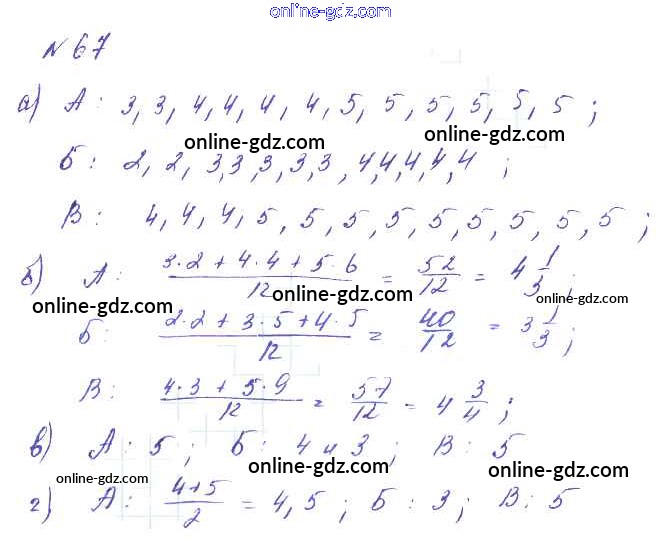 online-gdz.com
№ 67
а) А: 3, 3, 4, 4, 4, 4, 5, 5, 5, 5, 5, 5 ;
online-gdz.com online-gdz.com
Б: 2, 2, 3,3,3,3,3, 4,4,4,4,4 ;
В: 4, 4, 4, 5, 5, 5, 5, 5, 5, 5, 5, 5 ;
б) А: (3·2 + 4·4 + 5·6)/12 = 52/12 = 4 1/3 ;
online-gdz.com online-gdz.com online-gdz.com
Б: (2·2 + 3·5 + 4·5)/12 = 40/12 = 3 1/3 ;
В: (4·3 + 5·9)/12 = 57/12 = 4 3/4 ;
в) А: 5 ; Б: 4 и 3 ; В: 5
online-gdz.com online-gdz.com online-gdz.com
г) А: (4+5)/2 = 4,5 ; Б: 3 ; В: 5